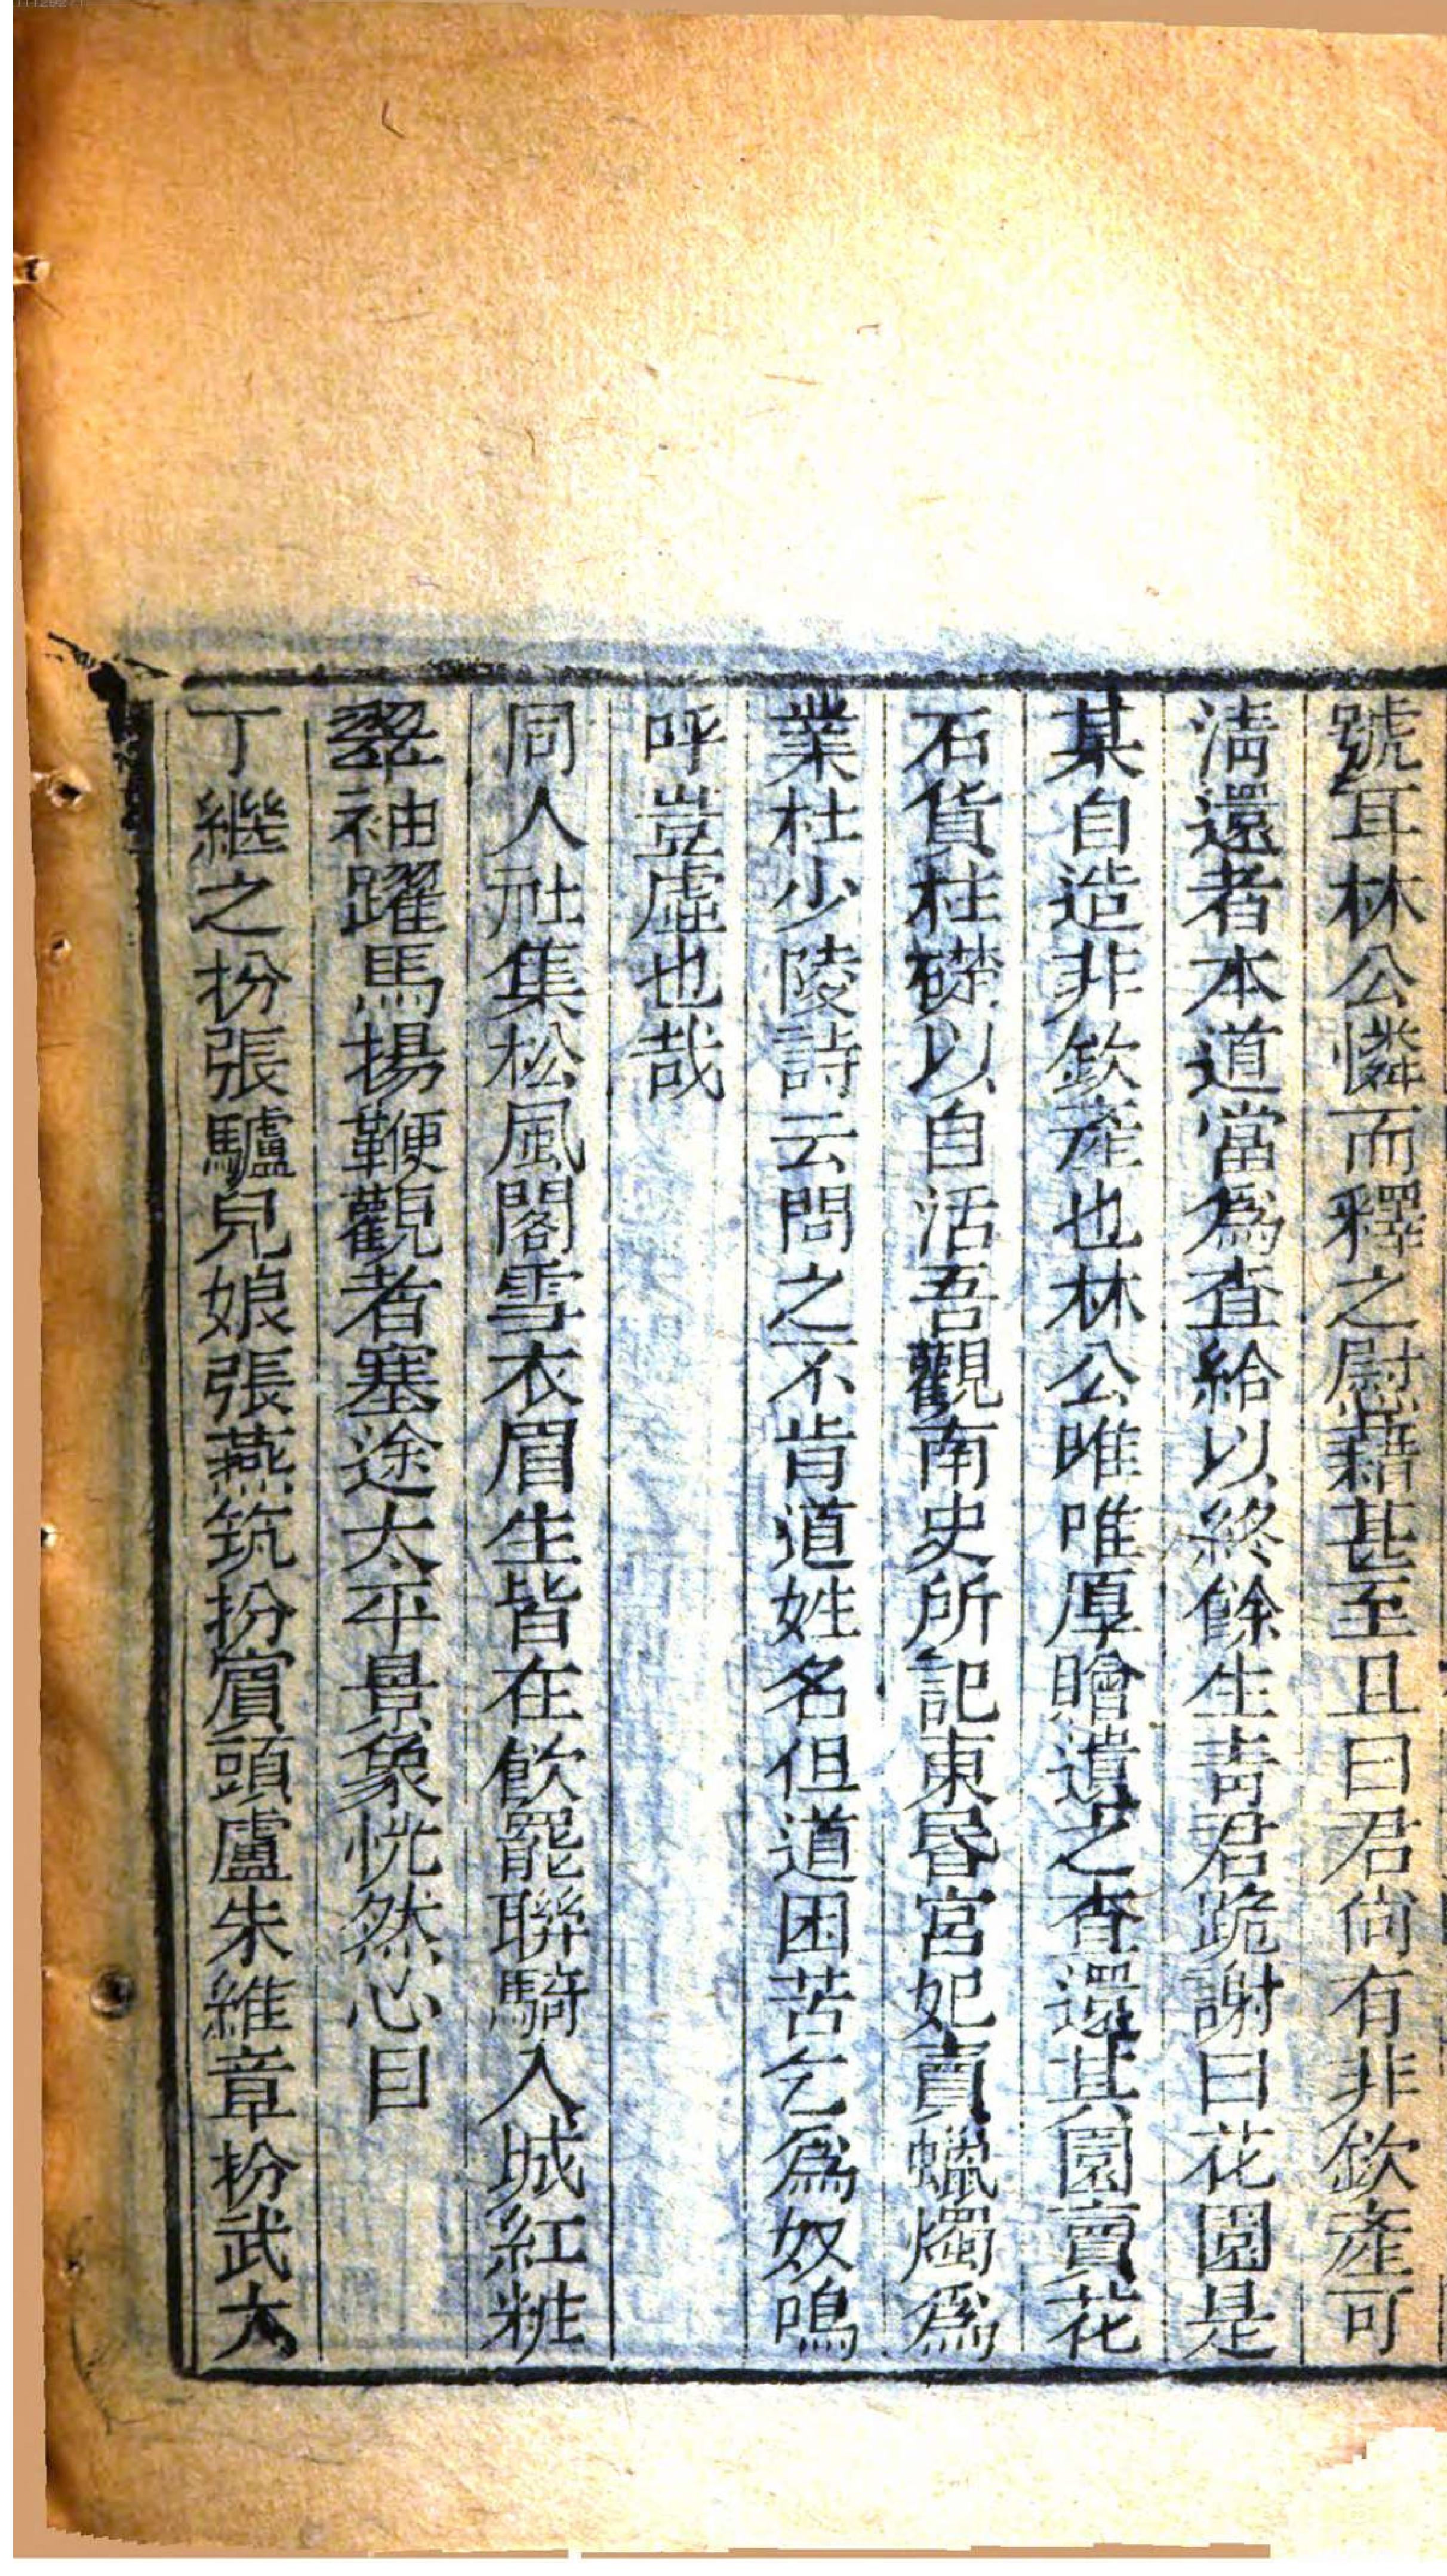 號耳林公憐而釋之慰藉甚至且曰君尙有非欽產可
淸還者本道當爲查給以終餘生靑君跪謝曰花園是
某自造非欽產也林公唯唯厚贈遺之查還其園賣花
石貨柱礎以自活吾觀南史所記東昏宮妃賣蠟燭爲
業杜少陵詩云問之不肯道姓名但道困苦乞爲奴鳴
呼豈虛也哉
同人社集松風閣雪衣眉生皆在飮罷聯騎入城紅粧
翠袖躍馬揚鞭觀者塞途太平景象恍然心目
丁繼之扮張驢兒娘張燕筑扮賔頭盧朱維章扮武大